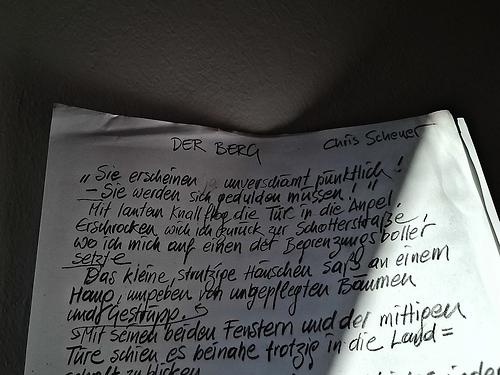 DER BERG Chris Scheuer
„Sie erscheinen ja unverschämt pünktlich!
– Sie werden sich gedulden müssen!"
Mit lautem Knall flog die Türe in die Angel.
Erschrocken wich ich zurück zur Schotterstraße,
wo ich mich auf einen der Begrenzungsboller
setzte
Das kleine, struppige Häuschen saß an einem
Hang, umgeben von ungepflegten Bäumen
und Gestrüpp.
Mit seinen beiden Fenstern und der mittigen
Türe schien es beinahe trotzig in die Land=
schaft zu blicken